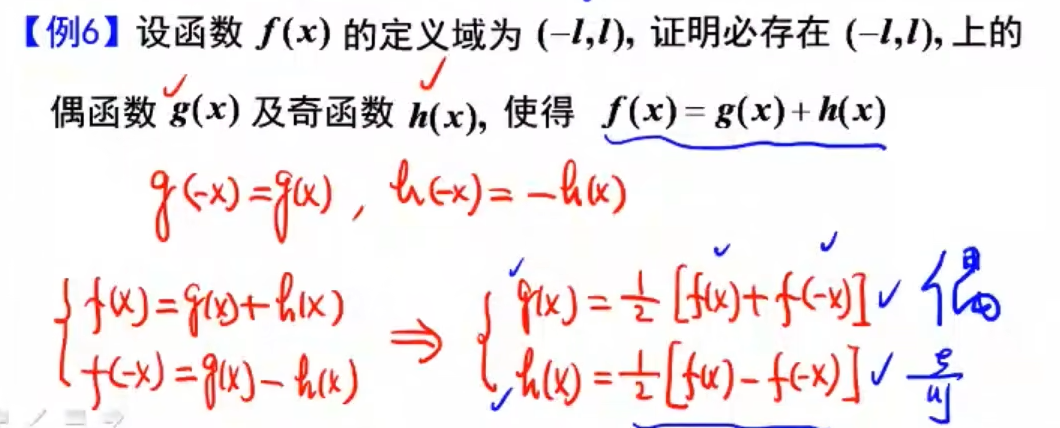 【例6】设函数 f(x) 的定义域为 (−l,l), 证明必存在 (−l,l), 上的
偶函数 g(x) 及奇函数 h(x), 使得 f(x) = g(x) + h(x)
g(-x)=g(x), h(-x)= -h(x)
{ f(x)=g(x)+h(x) ⇒ { g(x) = 1/2 [f(x)+f(-x)] 偶
f(-x)=g(x)-h(x) h(x) = 1/2 [f(x)-f(-x)]